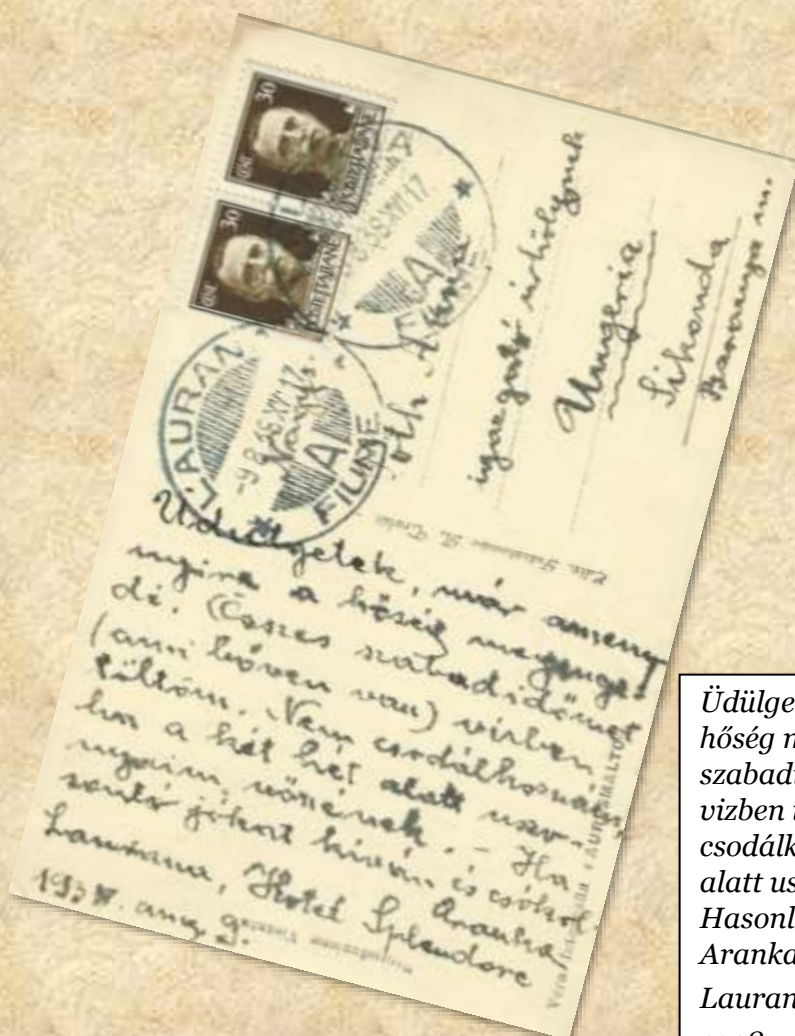 30
30
POSTE ITALIANE
POSTE ITALIANE
LAURANA
FIUME
A
A
igazgató úrhölgynek
Ungeria
Sikonda
Baranya m.
Üdülgetek, már ameny
nyira a hőség megenge-
di. (Összes szabadidőmet
(ami bőven van) vizben
töltöm. Nem csodálkoznám,
ha a két hét alatt uszo-
nyaim nőnének. – Ha
sonló jókat kíván és csókol
Aranka
Laurana, Hotel Splendore
aug. 9.
Vera fotografia
Üdülge
hőség
szabad
vizben
csodálk
alatt us
Hasonl
Aranka
Lauran